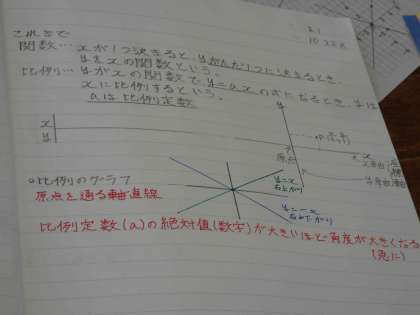 これまで
関数…xが1つ決まると、yがただ1つに決まるとき、
yをxの関数という。
比例…yがxの関数でy=axの式になるとき、yは
xに比例するという。
aは比例定数
x
y
y
x
原点
○比例のグラフ
原点を通る直線
y=x
右上がり
y=-x
右下がり
比例定数(a)の絶対値(数字)が大きいほど角度が大きくなる
(急に)